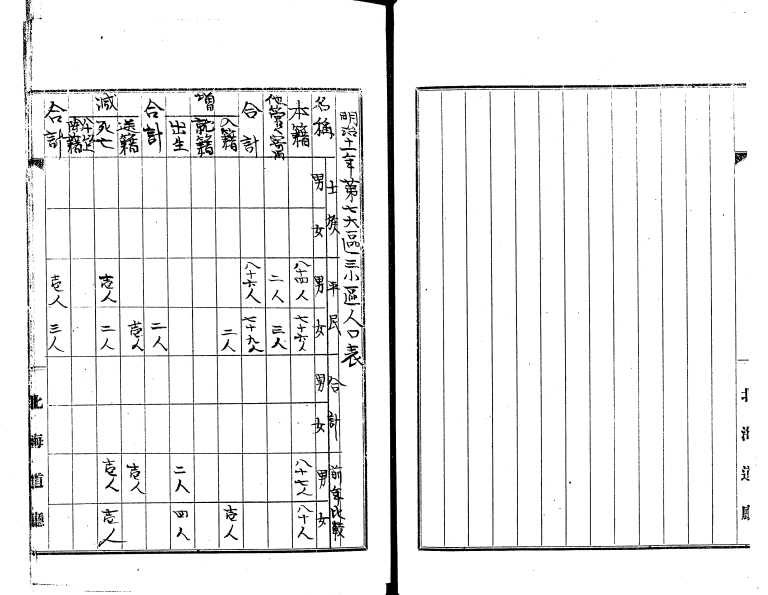 明治十一年第七大區三小區人口表
名稱 士族 男 女 平民 男 女 合計 男 女 前年比較 男 女
本籍 八十四人 七十六人 八十七人 八十人
他管ゟ寄留 二人 三人
合計 八十六人 七十九人
増 入籍 二人 壱人
就籍
出生 二人 四人
合計 二人
減 送籍 壱人 壱人
死亡 壱人 二人 壱人 壱人
除籍
合計 壱人 三人
北海道廳
北海道廳